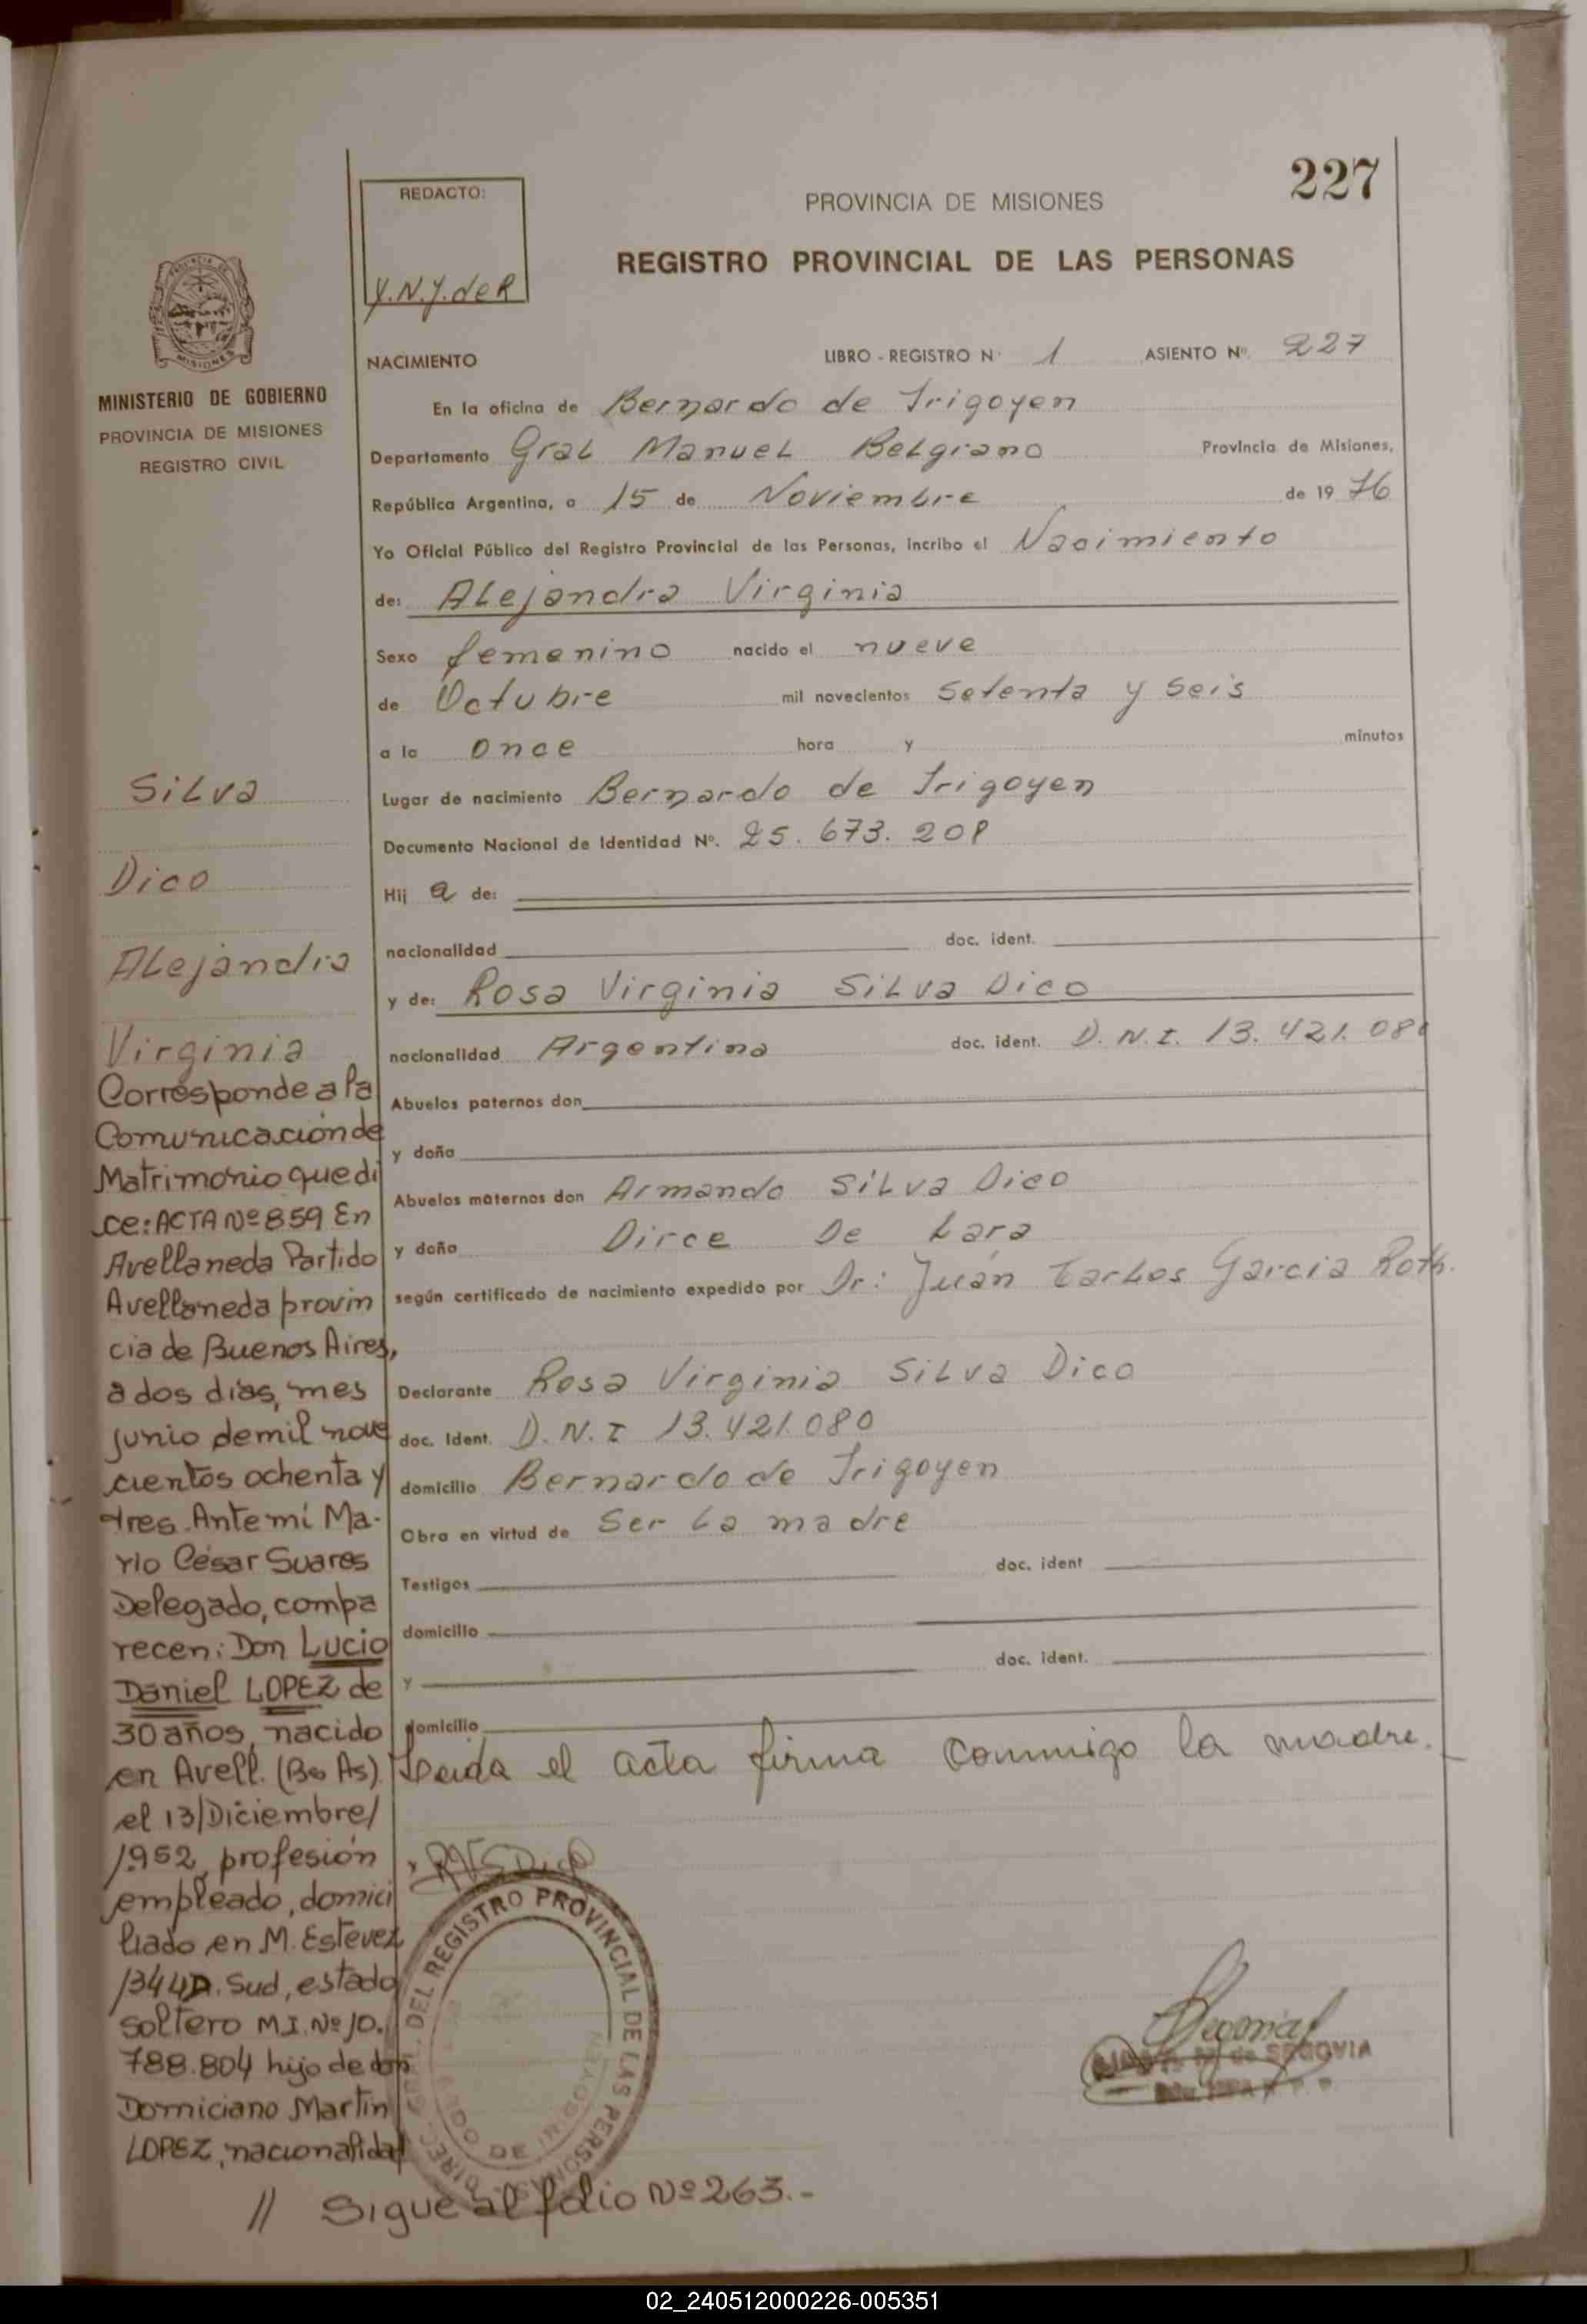 227
REDACTO:
Y.N.Y. de R
PROVINCIA DE MISIONES
REGISTRO PROVINCIAL DE LAS PERSONAS
MINISTERIO DE GOBIERNO
PROVINCIA DE MISIONES
REGISTRO CIVIL
NACIMIENTO LIBRO - REGISTRO N· 1 ASIENTO Nº. 227
En la oficina de Bernardo de Irigoyen
Departamento Gral Manuel Belgrano Provincia de Misiones,
República Argentina, a 15 de Noviembre de 19 76
Yo Oficial Público del Registro Provincial de las Personas, incribo el Nacimiento
de: Alejandra Virginia
Sexo femenino nacido el nueve
de Octubre mil novecientos setenta y seis
a la once hora y minutos
Lugar de nacimiento Bernardo de Irigoyen
Documento Nacional de Identidad Nº. 25.673.208
Hij a de:
nacionalidad doc. ident.
y de: Rosa Virginia Silva Dico
nacionalidad Argentina doc. ident. D.N.I. 13.421.080
Abuelos paternos don
y doña
Abuelos maternos don Armando Silva Dico
y doña Dirce De Lara
según certificado de nacimiento expedido por Dr: Juan Carlos Garcia Roth.
Declarante Rosa Virginia Silva Dico
doc. Ident. D.N.I 13.421.080
domicilio Bernardo de Irigoyen
Obra en virtud de Ser La madre
Testigos doc. ident
domicilio
y doc. ident.
domicilio
Leida el acta firma conmigo la madre.
Silva
Dico
Alejandra
Virginia
Corresponde a la
Comunicación de
Matrimonio que di
ce: ACTA Nº 859 En
Avellaneda Partido
Avellaneda provin
cia de Buenos Aires,
a dos días, mes
junio de mil nove
cientos ochenta y
tres. Ante mí Ma-
rio César Suares
Delegado, compa
recen: Don Lucio
Daniel LOPEZ de
30 años, nacido
en Avell. (Bs As)
el 13/Diciembre/
1952, profesión
empleado, domici
liado en M. Estevez
1344 D. Sud, estado
soltero M.I. Nº 10.
788.804 hijo de don
Domiciano Martin
LOPEZ, nacionalidad
// Sigue al folio Nº 263.-
DIREC. GRAL. DEL REGISTRO PROVINCIAL DE LAS PERSONAS
DE IRIGOYEN
de SEGOVIA
02_240512000226-005351